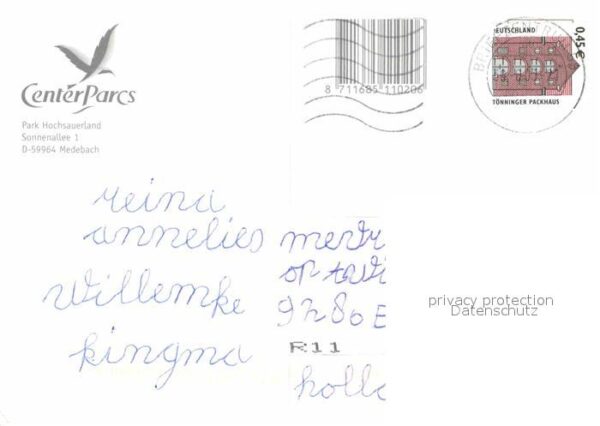 CenterParcs
Park Hochsauerland
Sonnenallee 1
D-59964 Medebach
8 711685 110206
DEUTSCHLAND
0,45€
TÖNNINGER PACKHAUS
reina
annelies
willemke
kingma
R11
privacy protection
Datenschutz